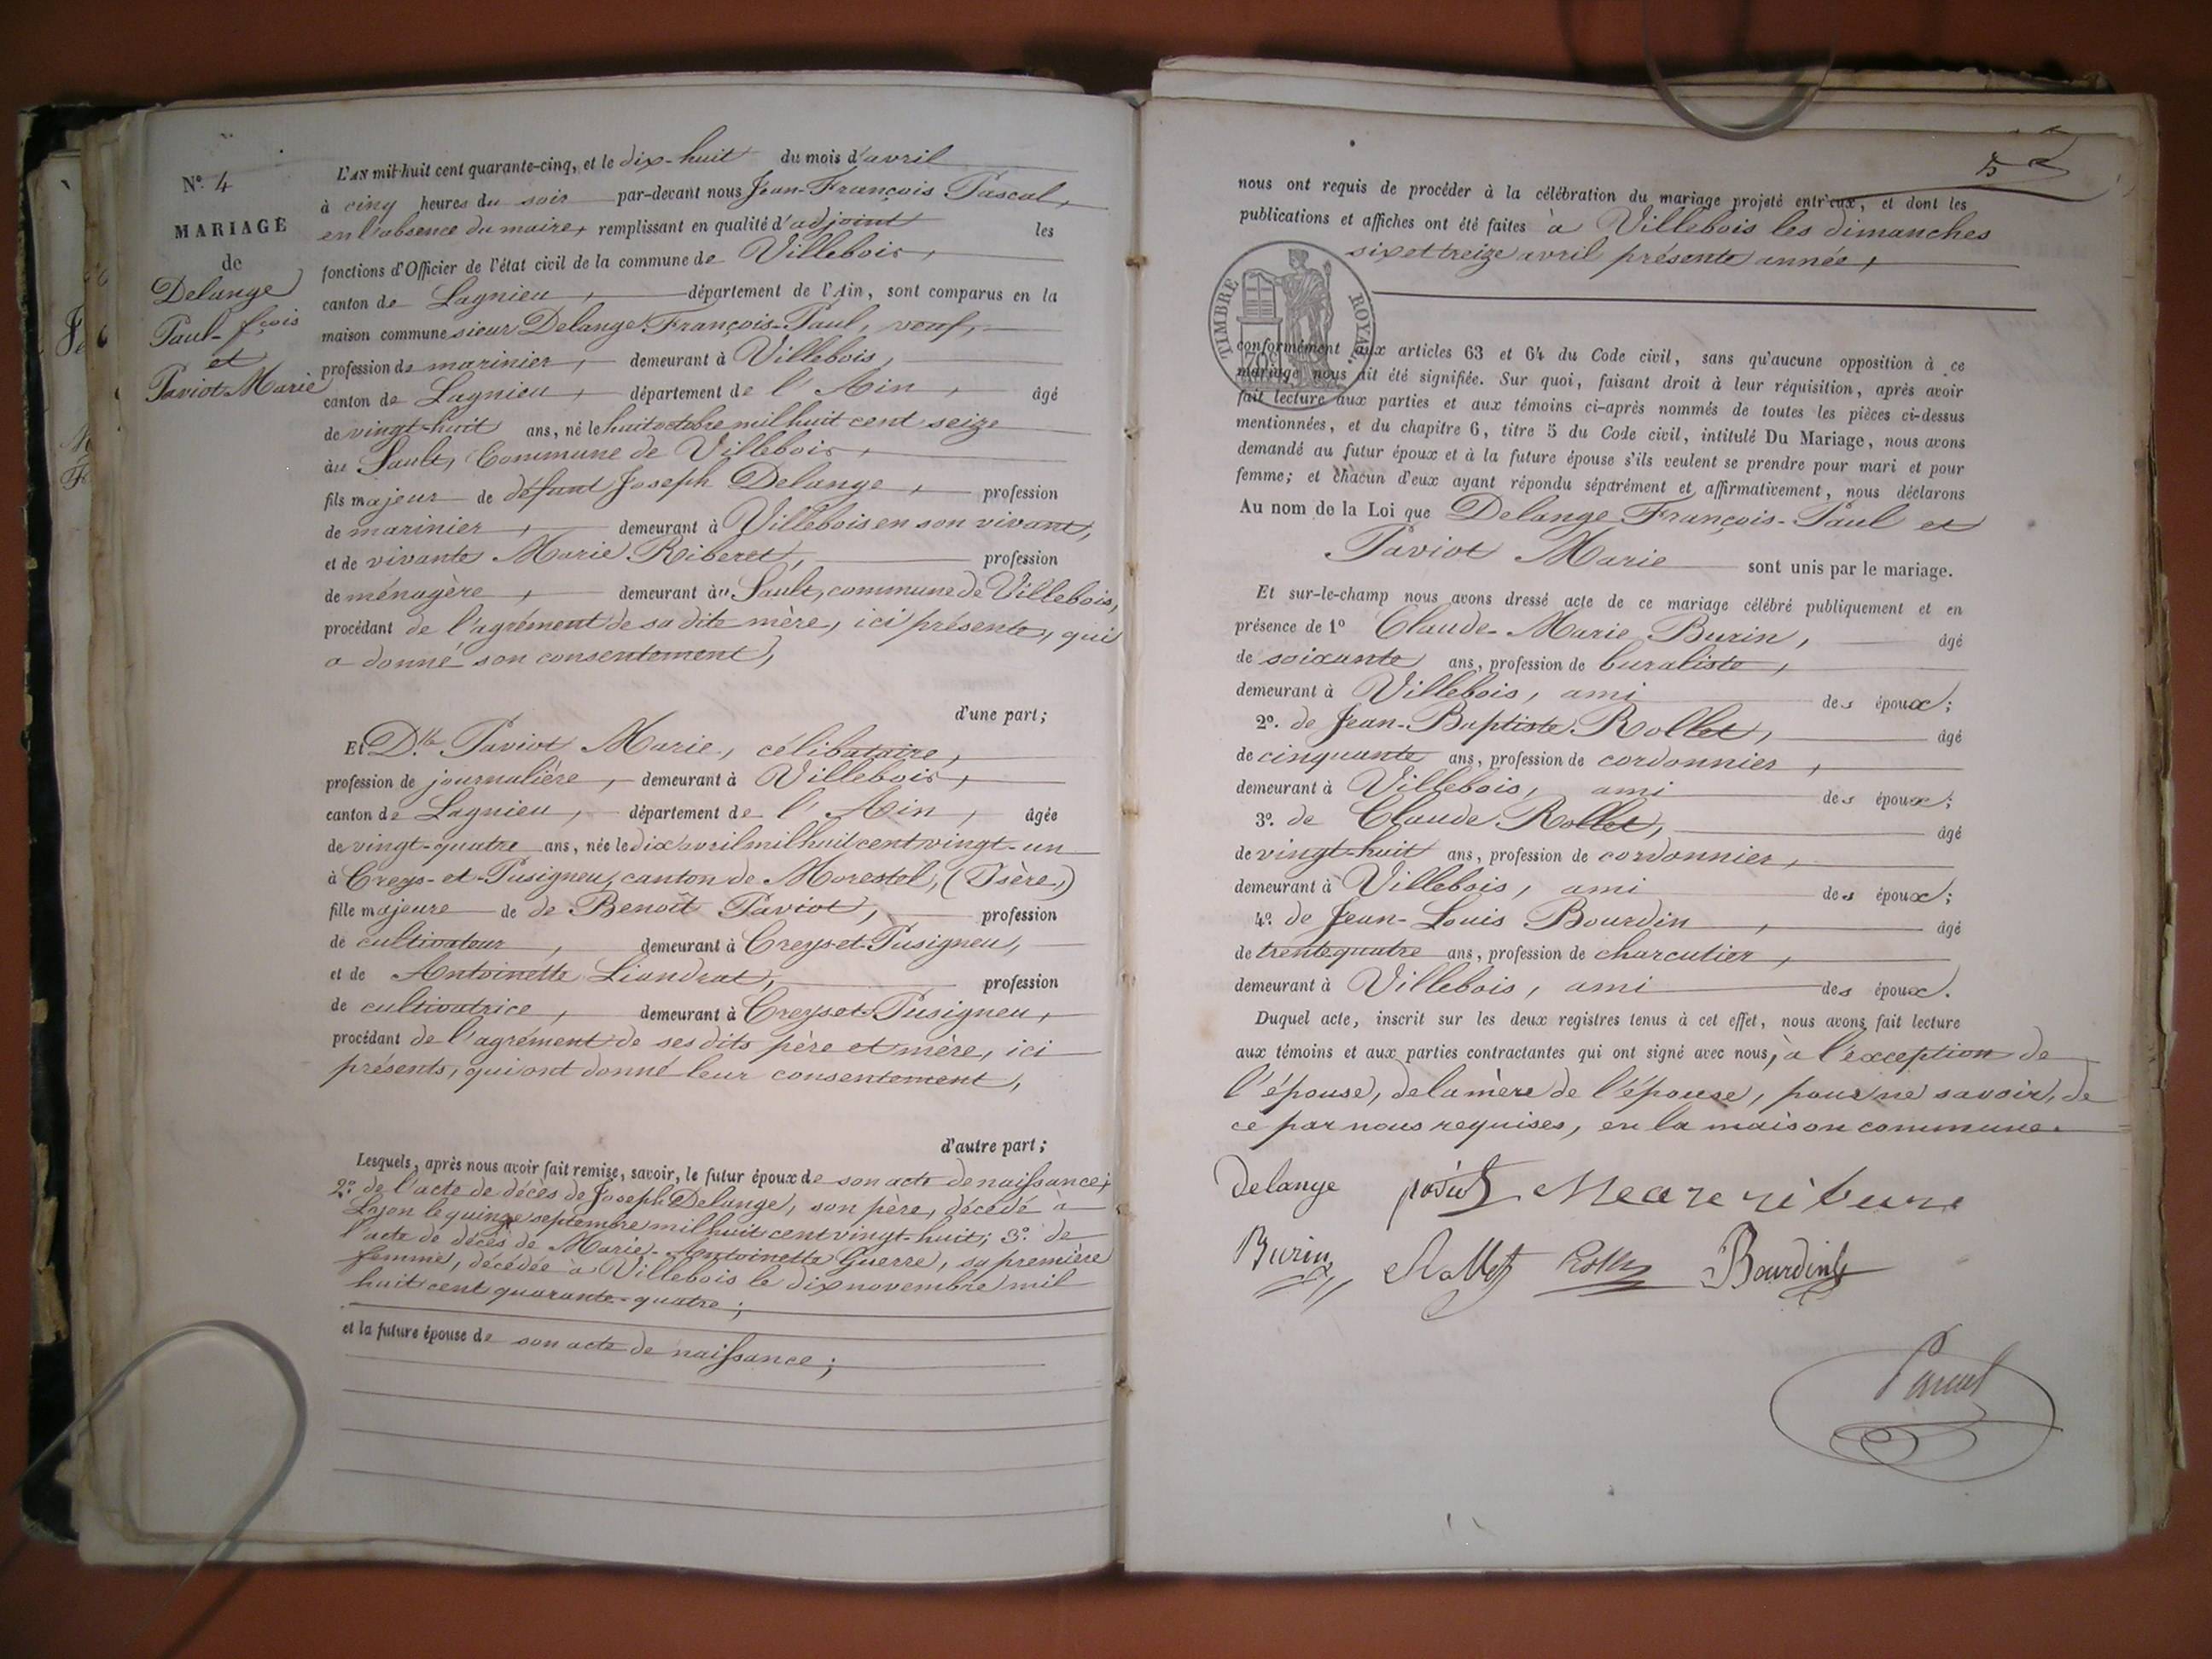 N.º 4
MARIAGE
de
Delange
Paul-fçois
et
Paviot Marie
L'AN mil huit cent quarante-cinq, et le dix-huit du mois d'avril
à cinq heures du soir par-devant nous Jean-François Pascal,
en l'absence du maire, remplissant en qualité d'adjoint les
fonctions d'Officier de l'état civil de la commune de Villebois,
canton de Lagnieu, département de l'Ain, sont comparus en la
maison commune sieur Delange François-Paul, veuf,
profession de marinier, demeurant à Villebois,
canton de Lagnieu, département de l'Ain, âgé
de vingt-huit ans, né le huit octobre mil huit cent seize
au Sault, Commune de Villebois,
fils majeur de défunt Joseph Delange, profession
de marinier, demeurant à Villebois en son vivant,
et de vivante Marie Riberet, profession
de ménagère, demeurant au Sault, commune de Villebois,
procédant de l'agrément de sa dite mère, ici présente, qui
a donné son consentement,
d'une part;
Et D.lle Paviot Marie, célibataire,
profession de journalière, demeurant à Villebois,
canton de Lagnieu, département de l'Ain, âgée
de vingt-quatre ans, née le dix avril mil huit cent vingt-un
à Creys-et-Pusigneu, canton de Morestel, (Isère,)
fille majeure de de Benoît Paviot, profession
de cultivateur, demeurant à Creys-et-Pusigneu,
et de Antoinette Liandrat, profession
de cultivatrice, demeurant à Creys-et-Pusigneu,
procédant de l'agrément de ses dits père et mère, ici
présents, qui ont donné leur consentement,
d'autre part;
Lesquels, après nous avoir fait remise, savoir, le futur époux de son acte de naissance;
2.º de l'acte de décès de Joseph Delange, son père, décédé à
le quinze septembre mil huit cent vingt-huit; 3.º de
l'acte de décès de Marie-Antoinette Guerre, sa première
femme, décédée à Villebois le dix novembre mil
huit cent quarante-quatre;
et la future épouse de son acte de naissance;
5
nous ont requis de procéder à la célébration du mariage projeté entr'eux, et dont les
publications et affiches ont été faites à Villebois les dimanches
six et treize avril présente année,
TIMBRE ROYAL
conformément aux articles 63 et 64 du Code civil, sans qu'aucune opposition à ce
mariage nous ait été signifiée. Sur quoi, faisant droit à leur réquisition, après avoir
fait lecture aux parties et aux témoins ci-après nommés de toutes les pièces ci-dessus
mentionnées, et du chapitre 6, titre 5 du Code civil, intitulé Du Mariage, nous avons
demandé au futur époux et à la future épouse s'ils veulent se prendre pour mari et pour
femme; et chacun d'eux ayant répondu séparément et affirmativement, nous déclarons
Au nom de la Loi que Delange François-Paul et
Paviot Marie sont unis par le mariage.
Et sur-le-champ nous avons dressé acte de ce mariage célébré publiquement et en
présence de 1º Claude-Marie Burin, âgé
de soixante ans, profession de buraliste,
demeurant à Villebois, ami des époux;
2º. de Jean-Baptiste Rollet, âgé
de cinquante ans, profession de cordonnier,
demeurant à Villebois, ami des époux;
3º. de Claude Rollet, âgé
de vingt-huit ans, profession de cordonnier,
demeurant à Villebois, ami des époux;
4º. de Jean-Louis Bourdin, âgé
de trente quatre ans, profession de charcutier,
demeurant à Villebois, ami des époux.
Duquel acte, inscrit sur les deux registres tenus à cet effet, nous avons fait lecture
aux témoins et aux parties contractantes qui ont signé avec nous, à l'exception de
l'épouse, de la mère de l'épouse, pour ne savoir, de
ce par nous requises, en la maison commune.
Delange
Burin Rollet Bourdin
Pascal